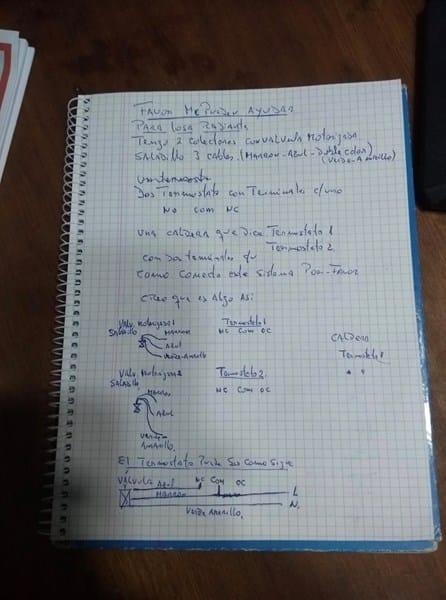 Favor Me Pueden AYUDAR
PARA LOSA RADIANTE
Tengo 2 colectores con valvula Motorizada
SALADILLO 3 cables (MARRON-AZUL-Doble color)
(Verde-Amarillo)
Dos Termostato con Terminales c/uno
NO COM NC
UNA CALDERA que Dice Termostato 1
Termostato 2
con Dos terminales
como conecto este sistema Por Favor
Creo que es Algo Asi
Valv Motorizada 1
SALADILLO
MARRON
Azul
Verde-Amarillo
Termostato 1
NC COM OC
CALDERA
Termostato
Valv Motorizada 2
SALADILLO
Marron
Azul
Verde
Amarillo
Termostato 2
NC COM OC
El Termostato Puede Ser Como Sigue
Válvula Azul NC COM OC
Marron L
N
Verde Amarillo